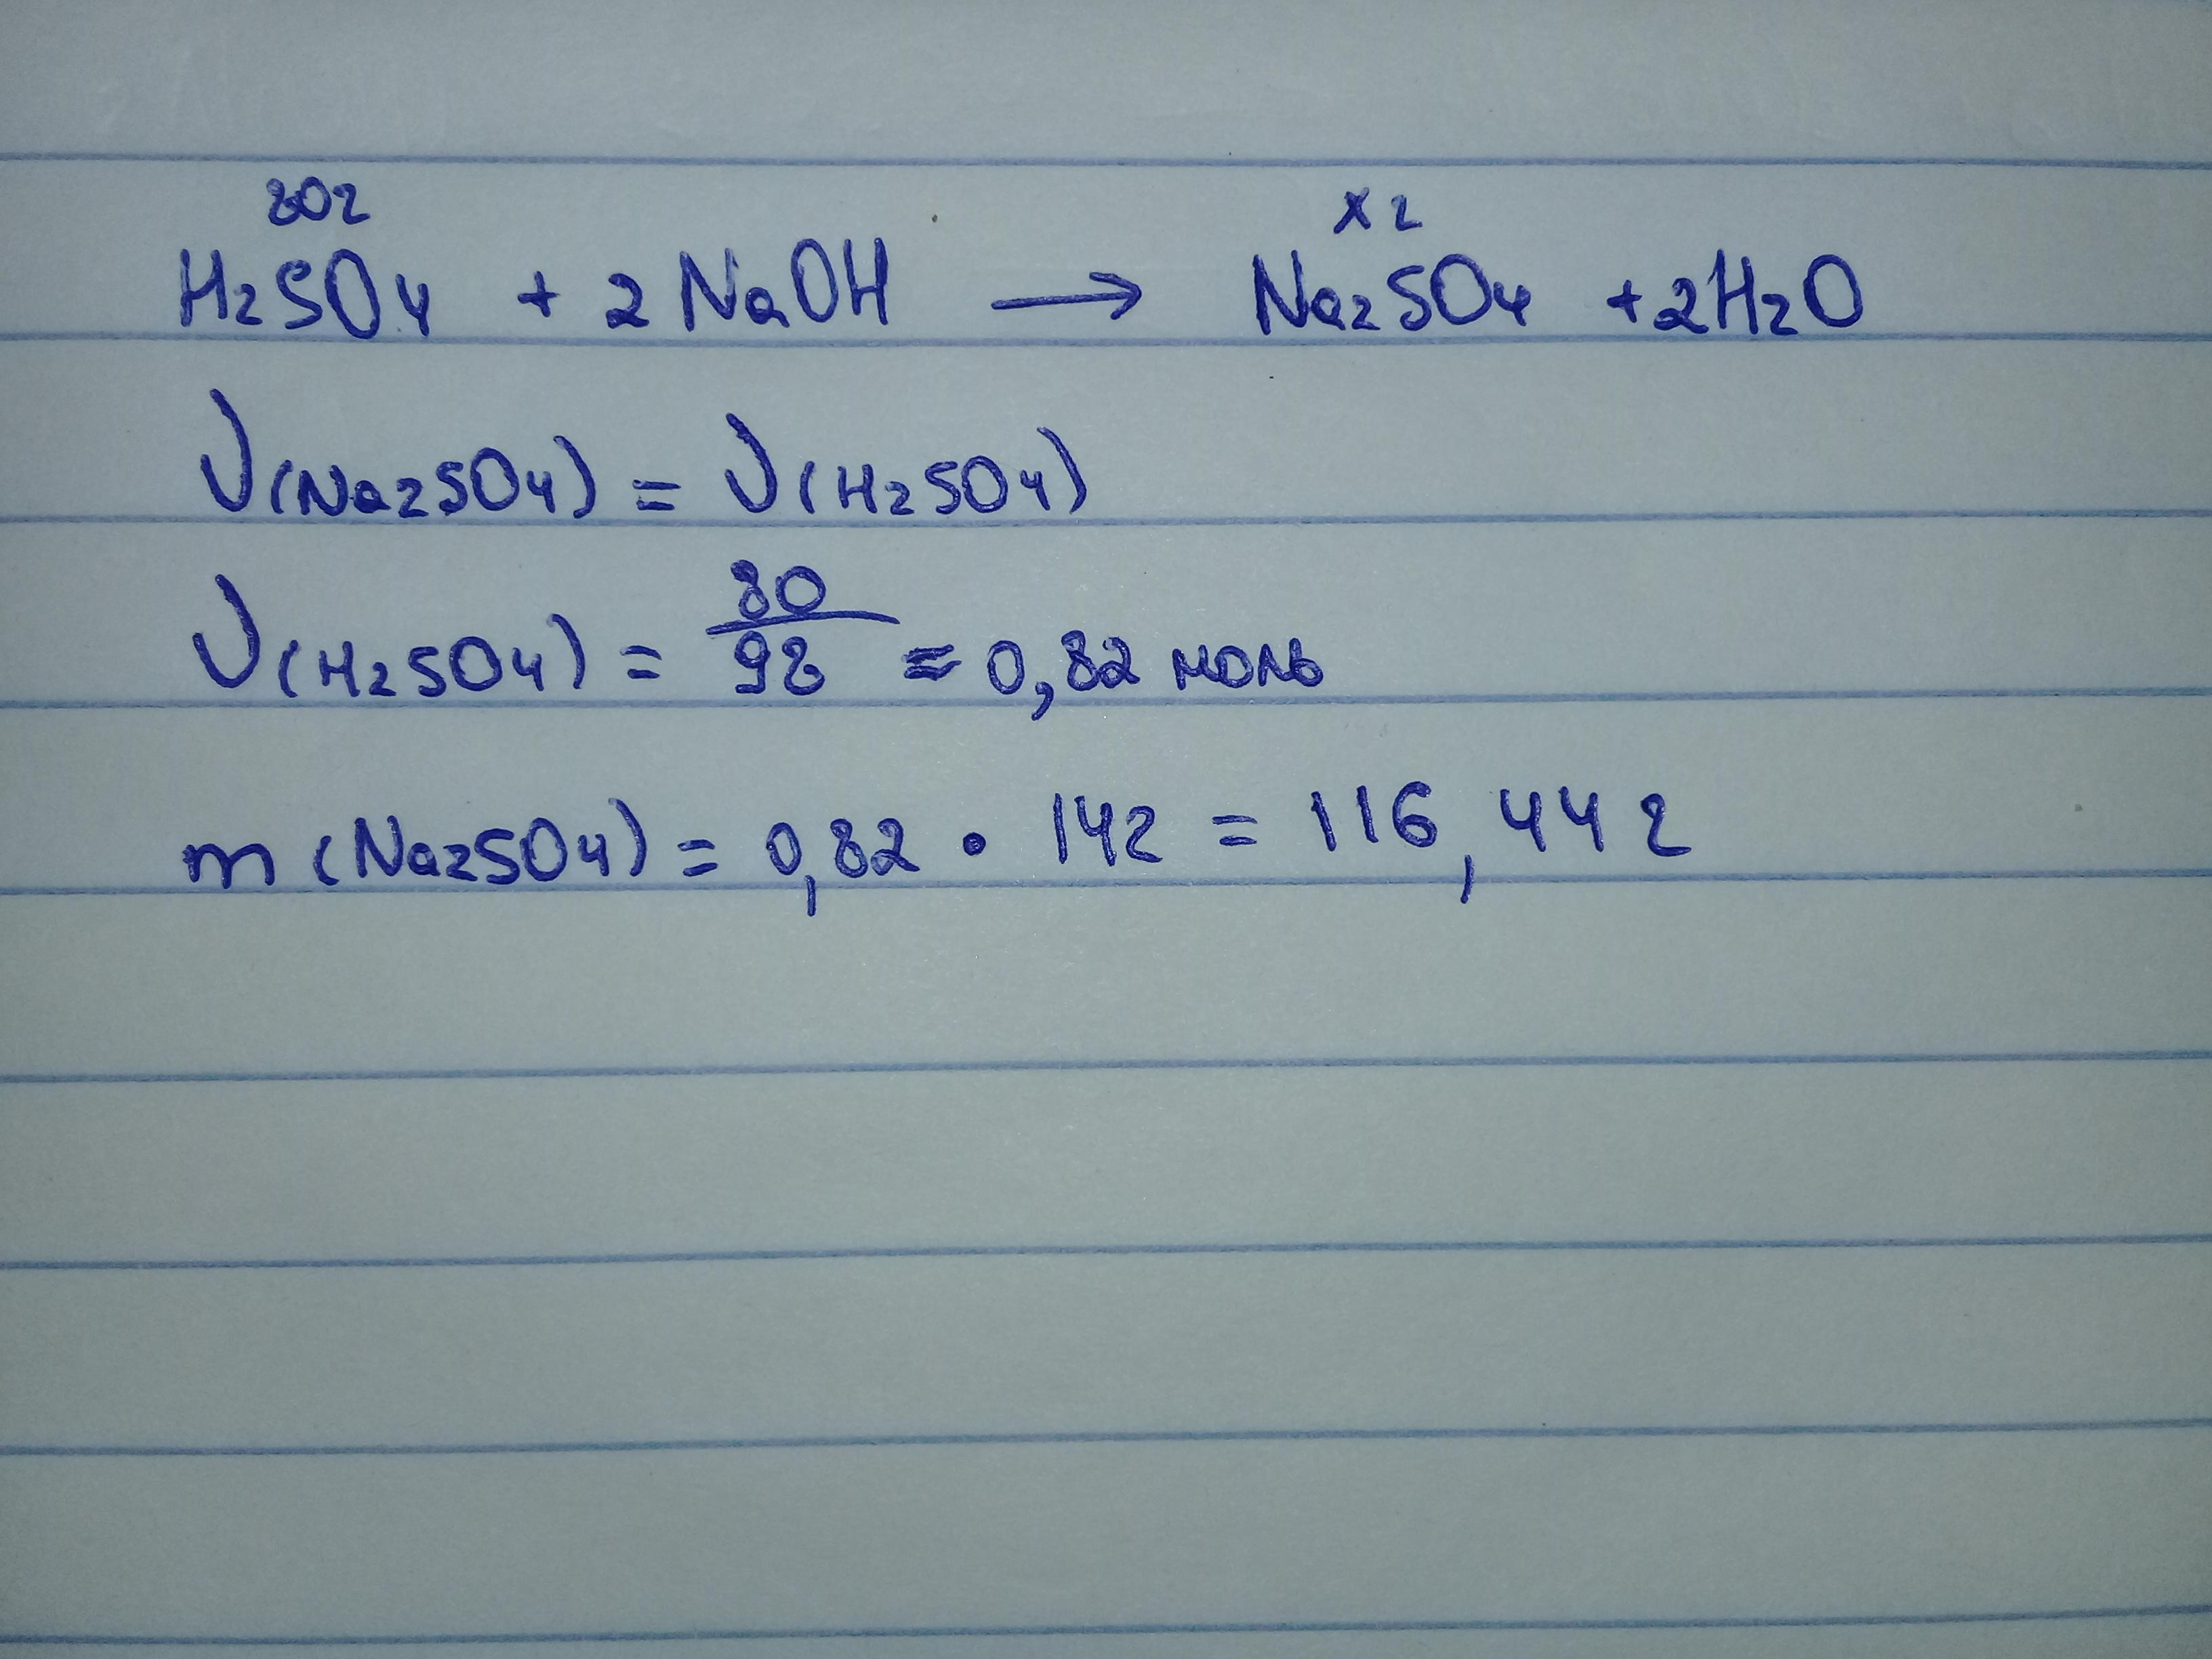 80г х г
H2SO4 + 2 NaOH → Na2SO4 + 2H2O
ν(Na2SO4) = ν(H2SO4)
ν(H2SO4) = 80/98 = 0,82 моль
m (Na2SO4) = 0,82 • 142 = 116,44 г